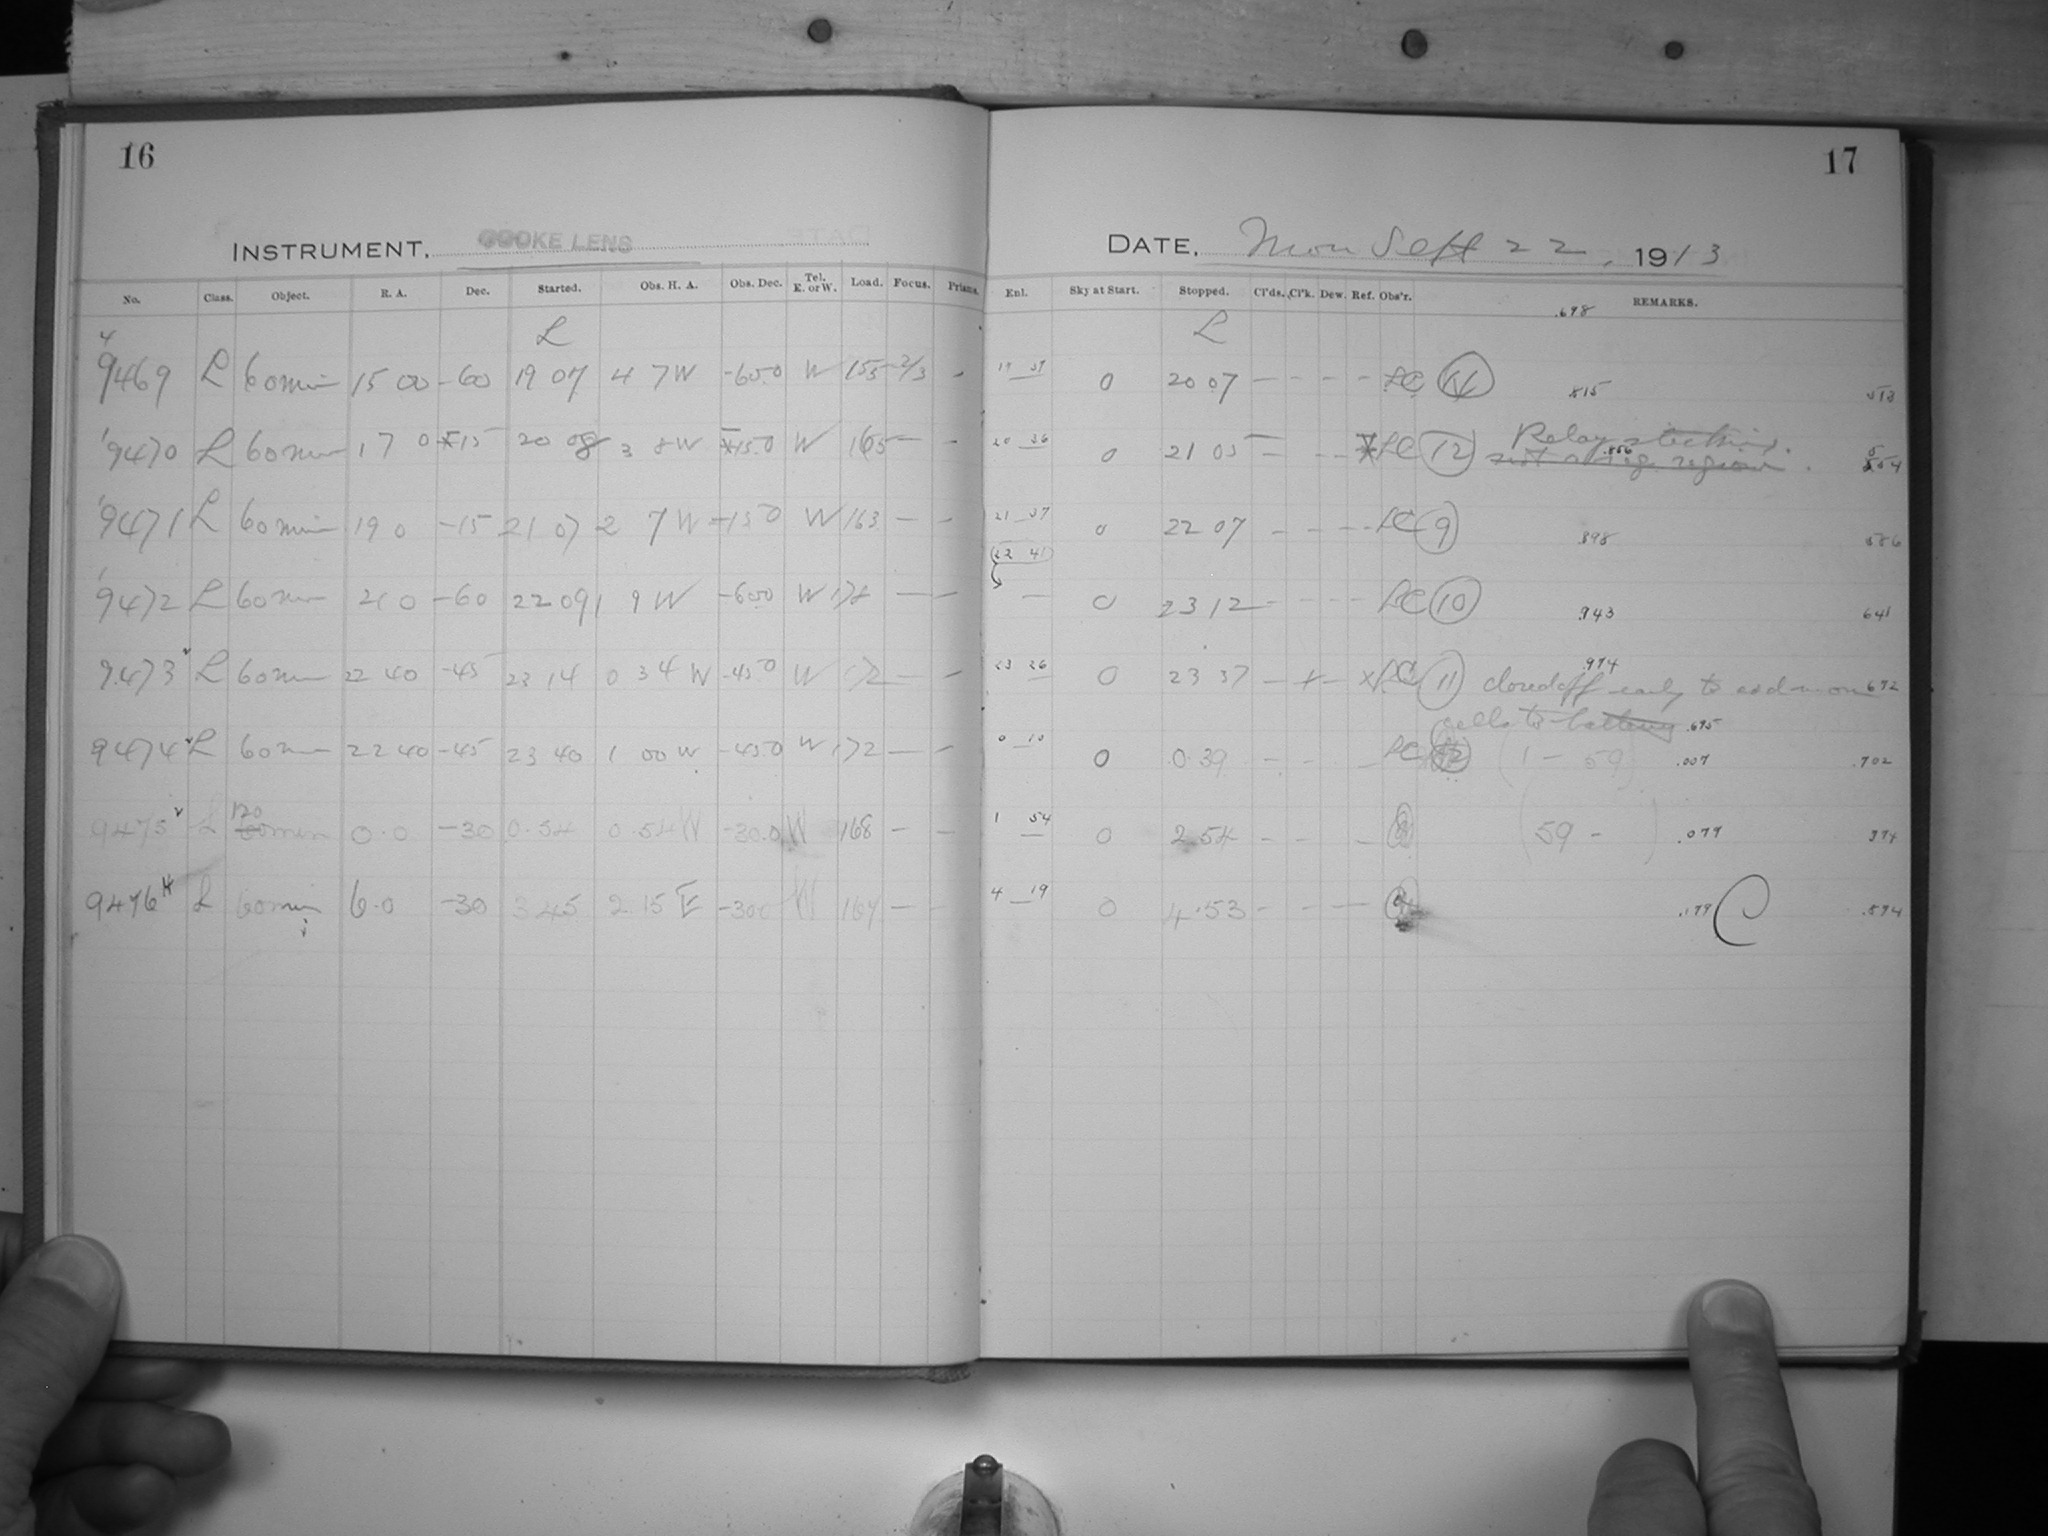 16
INSTRUMENT, COOKE LENS
No. Class. Object. R. A. Dec. Started. Obs. H. A. Obs. Dec. Tel. E. or W. Load. Focus. Prisms.
L
9469 L 60 min 15 00 -60 19 07 4 7 W -60.0 W 155 2/3 -
9470 L 60 min 17 0 15 20 08 3 8 W 15.0 W 165 - -
9471 L 60 min 19 0 -15 21 07 2 7 W -15 0 W 163 - -
9472 L 60 min 21 0 -60 22 09 1 9 W -60.0 W 178 - -
9473 L 60 min 22 40 -45 23 14 0 34 W -45.0 W 172 - -
9474 L 60 min 22 40 -45 23 40 1 00 W -45.0 W 172 - -
9475 L 120 60 min 0.0 -30 0.54 0.54 W -30.0 W 168 - -
9476 L 60 min 6.0 -30 3 45 2 15 E -30.0 W 167 - -
17
DATE, Mon Sept 22, 1913
Enl. Sky at Start. Stopped. Cl'ds. Cl'k. Dew. Ref. Obs'r. REMARKS.
.698
L
19 37 0 20 07 - - - - LC .815 513
20 36 0 21 05 - - - LC 12 Relay sticking.
.856 554
21 37 0 22 07 - - - - LC 9 .898 586
22 41
0 23 12 - - - - LC 10 .943 641
23 26 0 23 37 - + - x LC 11 closed off early to add more
.974 672
cells to battery .695
0 10 0 0.39 - - - LC 12 (1 - 59) .007 .702
1 54 0 2.54 - - - (59 - ) .077 774
4 19 0 4.53 - - - .177 C .874